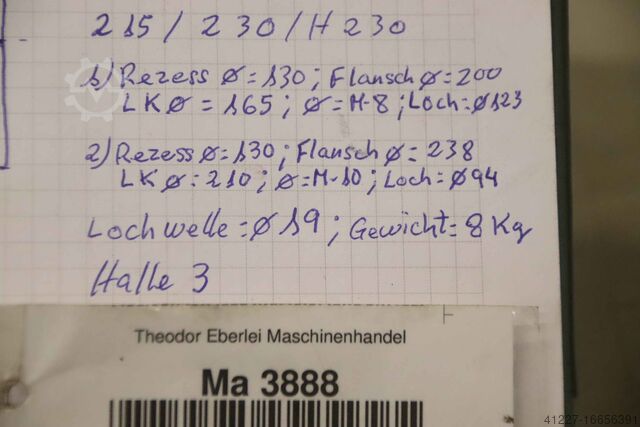 215/230/H230
1) Rezess ø=130; Flansch ø=200
LKø=165; ø=M-8; Loch=ø123
2) Rezess ø=130; Flansch ø=238
LKø=210; ø=M-10; Loch=ø94
Lochwelle=ø19; Gewicht=8Kg
Halle 3
Theodor Eberlei Maschinenhandel
Ma 3888
41227-16656391